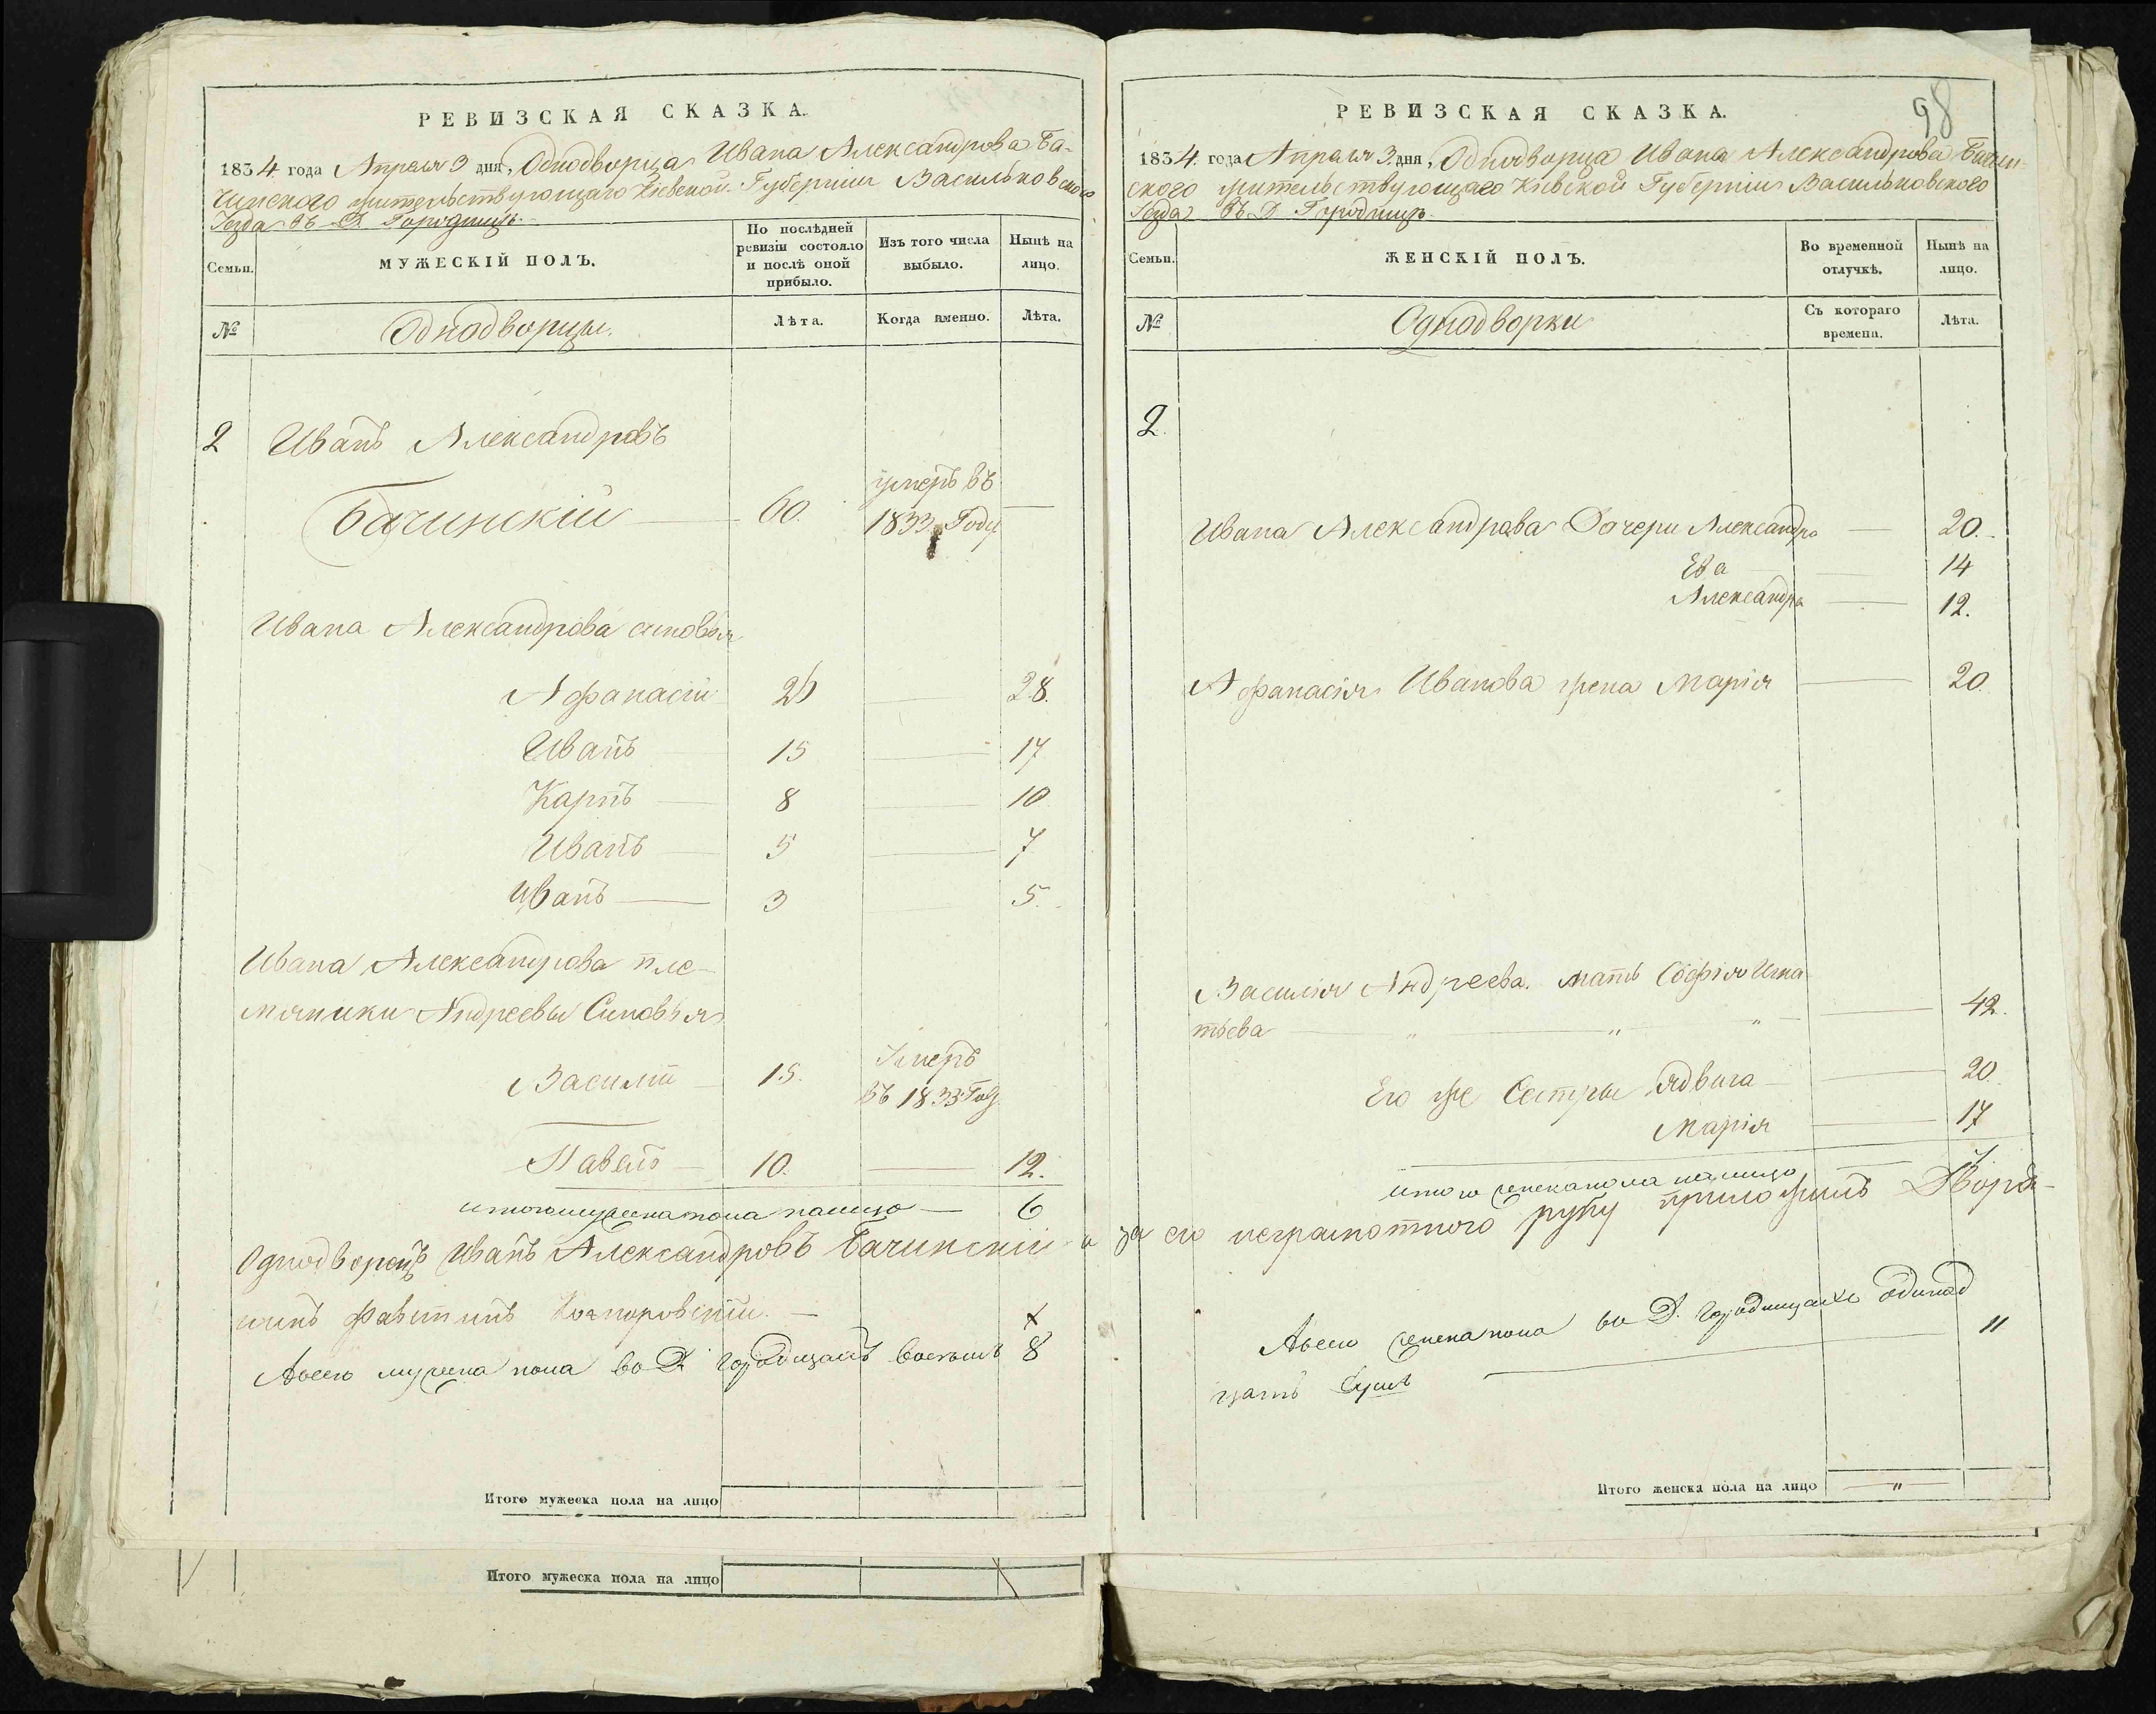 РЕВИЗСКАЯ СКАЗКА.
1834 года Апреля 3 дня, Однодворца Ивана Александрова Ба-
чинского жительствующаго Кіевской Губерніи Васильковского
Уезда въ Д. Городищъ.
Семьи.
МУЖЕСКІЙ ПОЛЪ.
По послѣдней ревизіи состояло и послѣ оной прибыло.
Изъ того числа выбыло.
Нынѣ на лицо.
№
Однодворцы.
Лѣта.
Когда именно.
Лѣта.
2 Иванъ Александровъ
Бачинскій 60. умеръ въ 1833 Году
Ивана Александрова сыновья
Афанасій 26 28.
Иванъ 15 17
Карпъ 8 10
Иванъ 5 7
Иванъ 3 5.
Ивана Александрова пле-
мяники Андреевы Сыновья
Василій 15. Умеръ въ 1833 Год
Павелъ 10. 12.
итого мужеска пола налицо 6
Однодворецъ Иванъ Александровъ Бачинскій а
нинъ
Авсего мужеска пола во Д. Городищахъ восемь 8
Итого мужеска пола на лицо
Итого мужеска пола на лицо
98
РЕВИЗСКАЯ СКАЗКА.
1834 года Апреля 3 дня, Однодворца Ивана Александрова Бачин-
ского жительствующаго Кіевской Губерніи Васильковского
Уезда въ Д Городищъ.
Семьи.
ЖЕНСКІЙ ПОЛЪ.
Во временной отлучкѣ.
Нынѣ на лицо.
№
Однодворки
Съ котораго времени.
Лѣта.
2.
Ивана Александрова Дочери Александра 20.
Ева 14
Александра 12.
Афанасія Иванова жена Марія 20
Василія Андреева мать Софія Игна
тьева " " " 42.
Его же Сестры Ядвига 20
Марія 17
итого женска пола налицо 7
за его неграмотного руку приложилъ Дворя-
Авсего женска пола во Д. Городищахъ одинад
цать Душъ 11
Итого женска пола на лицо "